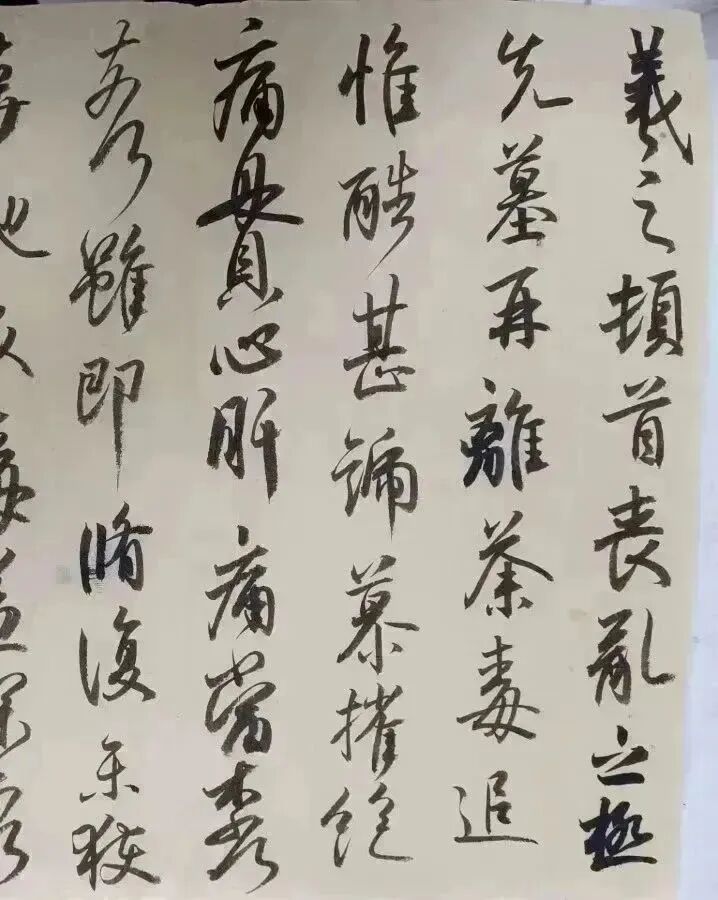 羲之頓首喪亂之極
先墓再離荼毒追
惟酷甚號慕摧絶
痛貫心肝痛當柰何
柰何雖即脩復未獲